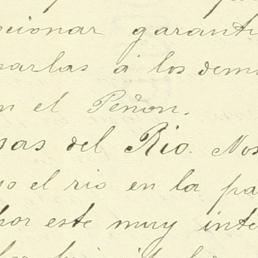 cionar garanti
sarlas á los demi
n el Peñon.
sas del Rio. Nos
so el rio en la pa
por este muy inte